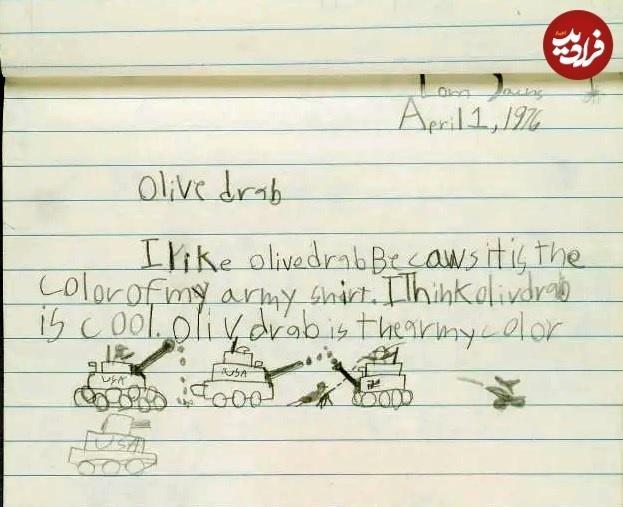 فرادید
April 1, 1976
Olive drab
I like olivedrab Becaws it is the
color of my army shirt. I Think olivdrab
is cool. Oliv drab is the army color
USA
USA
USA